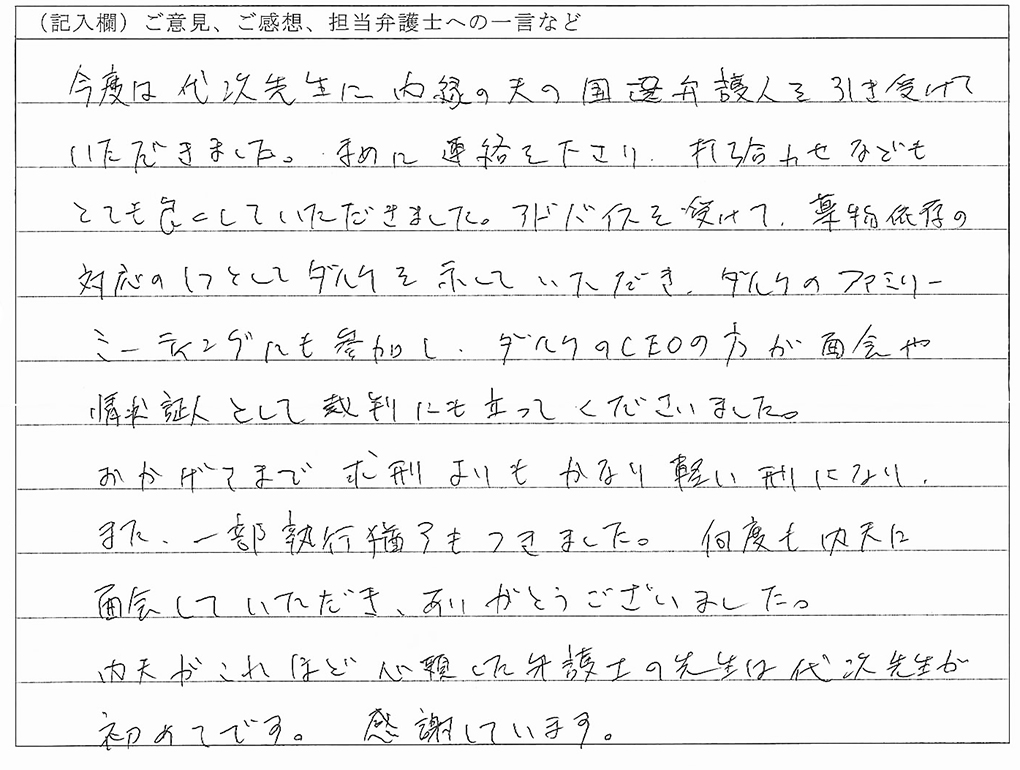 （記入欄）ご意見、ご感想、担当弁護士への一言など
今度は代次先生に内縁の夫の国選弁護人を引き受けて
いただきました。まめに連絡を下さり、打ち合わせなども
とても良くしていただきました。アドバイスを受けて、薬物依存の
対応の1つとしてダルクを示していただき、ダルクのファミリー
ミーティングにも参加し、ダルクのCEOの方が面会や
情状証人として裁判にも立ってくださいました。
おかげさまで求刑よりもかなり軽い刑になり、
また、一部執行猶予もつきました。何度も内夫に
面会していただき、ありがとうございました。
内夫がこれほど心頼した弁護士の先生は代次先生が
初めてです。感謝しています。